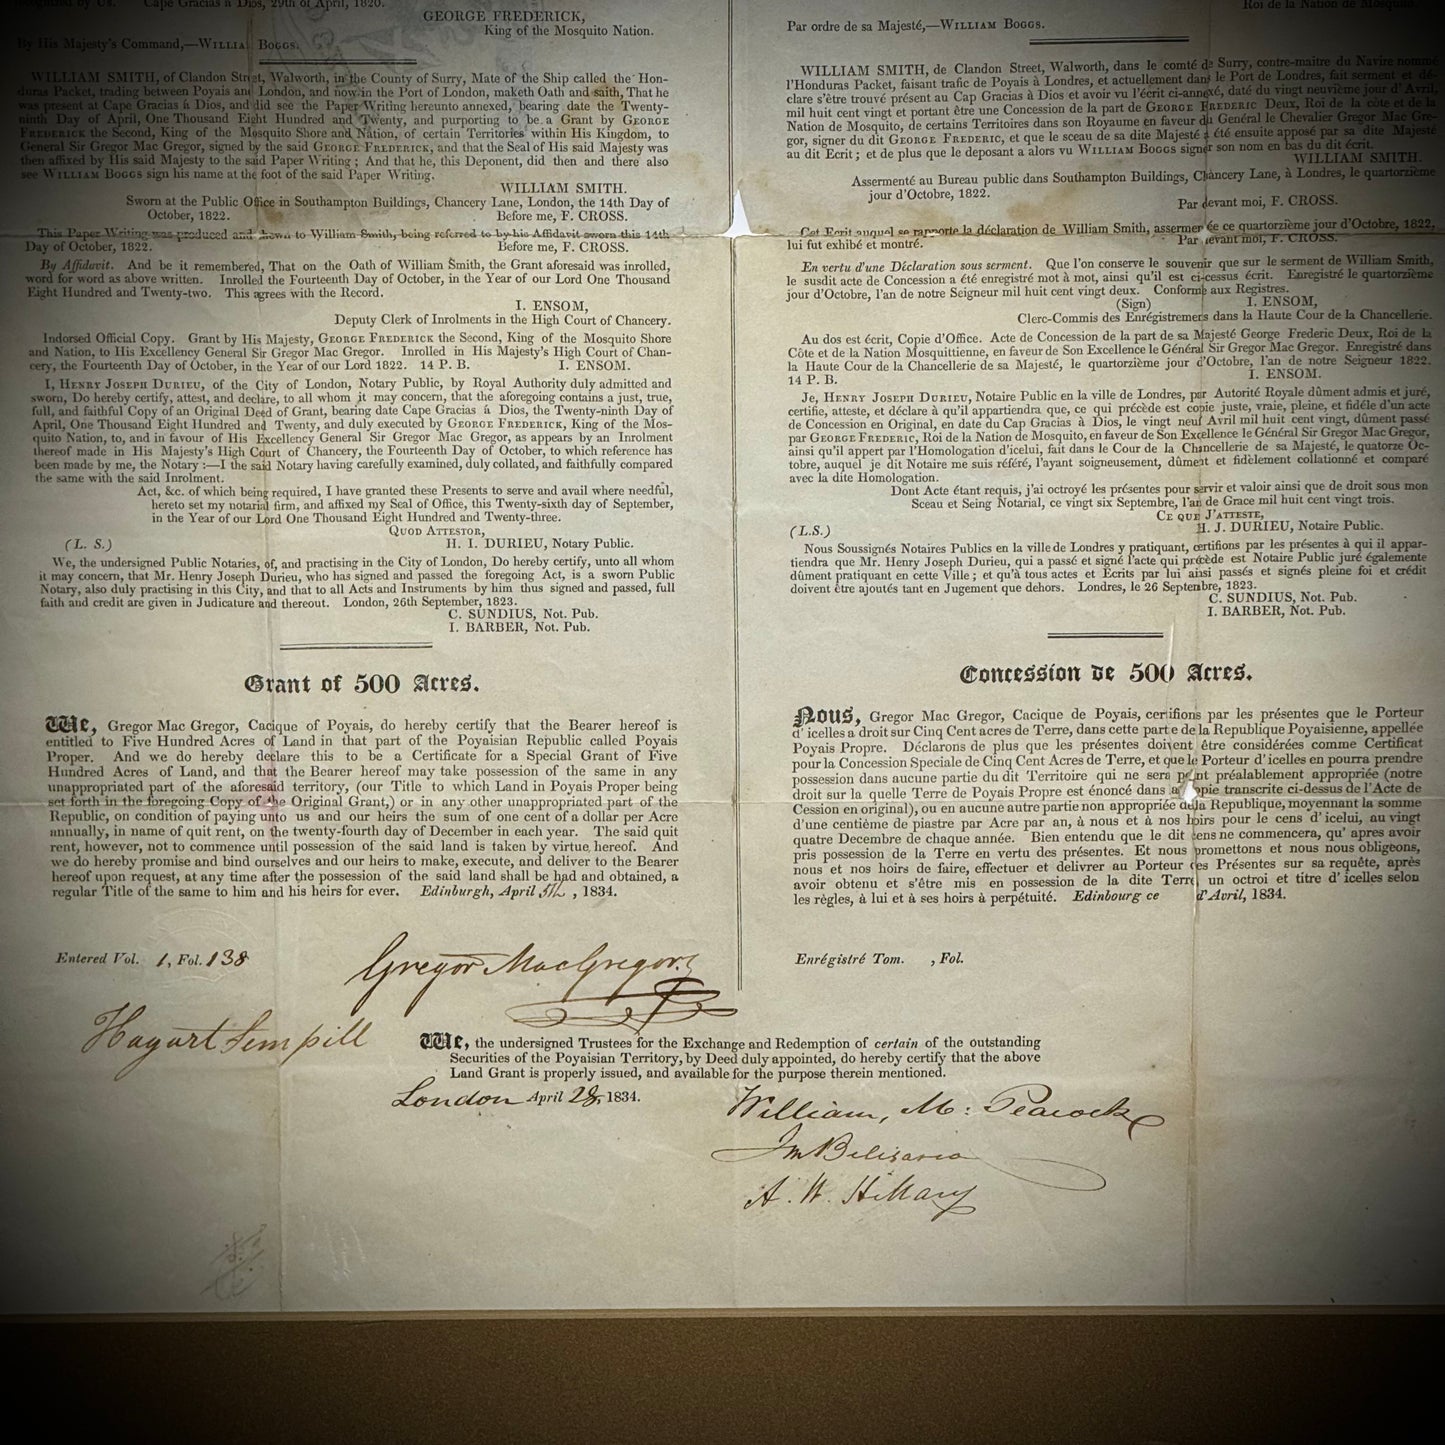 Cape Gracias á Dios, 29th of April, 1820.
GEORGE FREDERICK,
King of the Mosquito Nation.
By His Majesty's Command,—WILLIAM BOGGS.
WILLIAM SMITH, of Clandon Street, Walworth, in the County of Surry, Mate of the Ship called the Hon-
duras Packet, trading between Poyais and London, and now in the Port of London, maketh Oath and saith, That he
was present at Cape Gracias á Dios, and did see the Paper Writing hereunto annexed, bearing date the Twenty-
ninth Day of April, One Thousand Eight Hundred and Twenty, and purporting to be a Grant by GEORGE
FREDERICK the Second, King of the Mosquito Shore and Nation, of certain Territories within His Kingdom, to
General Sir Gregor Mac Gregor, signed by the said GEORGE FREDERICK, and that the Seal of His said Majesty was
then affixed by His said Majesty to the said Paper Writing; And that he, this Deponent, did then and there also
see WILLIAM BOGGS sign his name at the foot of the said Paper Writing.
WILLIAM SMITH.
Sworn at the Public Office in Southampton Buildings, Chancery Lane, London, the 14th Day of
October, 1822. Before me, F. CROSS.
This Paper Writing was produced and shown to William Smith, being referred to by his Affidavit sworn this 14th
Day of October, 1822. Before me, F. CROSS.
By Affidavit. And be it remembered, That on the Oath of William Smith, the Grant aforesaid was inrolled,
word for word as above written. Inrolled the Fourteenth Day of October, in the Year of our Lord One Thousand
Eight Hundred and Twenty-two. This agrees with the Record.
I. ENSOM,
Deputy Clerk of Inrolments in the High Court of Chancery.
Indorsed Official Copy. Grant by His Majesty, GEORGE FREDERICK the Second, King of the Mosquito Shore
and Nation, to His Excellency General Sir Gregor Mac Gregor. Inrolled in His Majesty's High Court of Chan-
cery, the Fourteenth Day of October, in the Year of our Lord 1822. 14 P. B. I. ENSOM.
I, HENRY JOSEPH DURIEU, of the City of London, Notary Public, by Royal Authority duly admitted and
sworn, Do hereby certify, attest, and declare, to all whom it may concern, that the aforegoing contains a just, true,
full, and faithful Copy of an Original Deed of Grant, bearing date Cape Gracias á Dios, the Twenty-ninth Day of
April, One Thousand Eight Hundred and Twenty, and duly executed by GEORGE FREDERICK, King of the Mos-
quito Nation, to, and in favour of His Excellency General Sir Gregor Mac Gregor, as appears by an Inrolment
thereof made in His Majesty's High Court of Chancery, the Fourteenth Day of October, to which reference has
been made by me, the Notary:—I the said Notary having carefully examined, duly collated, and faithfully compared
the same with the said Inrolment.
Act, &c. of which being required, I have granted these Presents to serve and avail where needful,
hereto set my notarial firm, and affixed my Seal of Office, this Twenty-sixth day of September,
in the Year of our Lord One Thousand Eight Hundred and Twenty-three.
QUOD ATTESTOR,
(L. S.) H. I. DURIEU, Notary Public.
We, the undersigned Public Notaries, of, and practising in the City of London, Do hereby certify, unto all whom
it may concern, that Mr. Henry Joseph Durieu, who has signed and passed the foregoing Act, is a sworn Public
Notary, also duly practising in this City, and that to all Acts and Instruments by him thus signed and passed, full
faith and credit are given in Judicature and thereout. London, 26th September, 1823.
C. SUNDIUS, Not. Pub.
I. BARBER, Not. Pub.
Grant of 500 Acres.
We, Gregor Mac Gregor, Cacique of Poyais, do hereby certify that the Bearer hereof is
entitled to Five Hundred Acres of Land in that part of the Poyaisian Republic called Poyais
Proper. And we do hereby declare this to be a Certificate for a Special Grant of Five
Hundred Acres of Land, and that the Bearer hereof may take possession of the same in any
unappropriated part of the aforesaid territory, (our Title to which Land in Poyais Proper being
set forth in the foregoing Copy of the Original Grant,) or in any other unappropriated part of the
Republic, on condition of paying unto us and our heirs the sum of one cent of a dollar per Acre
annually, in name of quit rent, on the twenty-fourth day of December in each year. The said quit
rent, however, not to commence until possession of the said land is taken by virtue hereof. And
we do hereby promise and bind ourselves and our heirs to make, execute, and deliver to the Bearer
hereof upon request, at any time after the possession of the said land shall be had and obtained, a
regular Title of the same to him and his heirs for ever. Edinburgh, April 5th, 1834.
Entered Vol. 1, Fol. 138
Gregor MacGregor
Hagart Sempill
Roi de la Nation de Mosquito.
Par ordre de sa Majesté,—WILLIAM BOGGS.
WILLIAM SMITH, de Clandon Street, Walworth, dans le comté de Surry, contre-maitre du Navire nommé
l'Honduras Packet, faisant trafic de Poyais à Londres, et actuellement dans le Port de Londres, fait serment et dé-
clare s'être trouvé présent au Cap Gracias à Dios et avoir vu l'écrit ci-annexé, daté du vingt neuvième jour d'Avril,
mil huit cent vingt et portant être une Concession de la part de GEORGE FREDERIC Deux, Roi de la côte et de la
Nation de Mosquito, de certains Territoires dans son Royaume en faveur du Général le Chevalier Gregor Mac Gre-
gor, signer du dit GEORGE FREDERIC, et que le sceau de sa dite Majesté a été ensuite apposé par sa dite Majesté
au dit Ecrit; et de plus que le deposant a alors vu WILLIAM BOGGS signer son nom en bas du dit écrit.
WILLIAM SMITH.
Assermenté au Bureau public dans Southampton Buildings, Chancery Lane, à Londres, le quatorzième
jour d'Octobre, 1822. Par devant moi, F. CROSS.
Cet Ecrit auquel se rapporte la déclaration de William Smith, assermentée ce quatorzième jour d'Octobre, 1822,
lui fut exhibé et montré. Par devant moi, F. CROSS.
En vertu d'une Déclaration sous serment. Que l'on conserve le souvenir que sur le serment de William Smith,
le susdit acte de Concession a été enregistré mot à mot, ainsi qu'il est ci-cessus écrit. Enregistré le quartorzième
jour d'Octobre, l'an de notre Seigneur mil huit cent vingt deux. Conforme aux Registres.
(Sign) I. ENSOM,
Clerc-Commis des Enregistremens dans la Haute Cour de la Chancellerie.
Au dos est écrit, Copie d'Office. Acte de Concession de la part de sa Majesté George Frederic Deux, Roi de la
Côte et de la Nation Mosquittienne, en faveur de Son Excellence le Général Sir Gregor Mac Gregor. Enregistré dans
la Haute Cour de la Chancellerie de sa Majesté, le quartorzième jour d'Octobre, l'an de notre Seigneur 1822.
14 P. B. I. ENSOM.
Je, HENRY JOSEPH DURIEU, Notaire Public en la ville de Londres, par Autorité Royale dûment admis et juré,
certifie, atteste, et déclare à qu'il appartiendra que, ce qui précède est copie juste, vraie, pleine, et fidéle d'un acte
de Concession en Original, en date du Cap Gracias à Dios, le vingt neuf Avril mil huit cent vingt, dûment passé
par GEORGE FREDERIC, Roi de la Nation de Mosquito, en faveur de Son Excellence le Général Sir Gregor Mac Gregor,
ainsi qu'il appert par l'Homologation d'icelui, fait dans le Cour de la Chancellerie de sa Majesté, le quatorze Oc-
tobre, auquel je dit Notaire me suis référé, l'ayant soigneusement, dûment et fidèlement collationné et comparé
avec la dite Homologation.
Dont Acte étant requis, j'ai octroyé les présentes pour servir et valoir ainsi que de droit sous mon
Sceau et Seing Notarial, ce vingt six Septembre, l'an de Grace mil huit cent vingt trois.
CE QUE J'ATTESTE,
(L.S.) H. J. DURIEU, Notaire Public.
Nous Soussignés Notaires Publics en la ville de Londres y pratiquant, certifions par les présentes à qui il appar-
tiendra que Mr. Henry Joseph Durieu, qui a passé et signé l'acte qui précède est Notaire Public juré également
dûment pratiquant en cette Ville; et qu'à tous actes et Ecrits par lui ainsi passés et signés pleine foi et crédit
doivent être ajoutés tant en Jugement que dehors. Londres, le 26 Septembre, 1823.
C. SUNDIUS, Not. Pub.
I. BARBER, Not. Pub.
Concession de 500 Acres.
Nous, Gregor Mac Gregor, Cacique de Poyais, certifions par les présentes que le Porteur
d'icelles a droit sur Cinq Cent acres de Terre, dans cette parte de la Republique Poyaisienne, appellée
Poyais Propre. Déclarons de plus que les présentes doivent être considérées comme Certificat
pour la Concession Speciale de Cinq Cent Acres de Terre, et que le Porteur d'icelles en pourra prendre
possession dans aucune partie du dit Territoire qui ne sera point préalablement appropriée (notre
droit sur la quelle Terre de Poyais Propre est énoncé dans a opie transcrite ci-dessus de l'Acte de
Cession en original), ou en aucune autre partie non appropriée de la Republique, moyennant la somme
d'une centième de piastre par Acre par an, à nous et à nos hoirs pour le cens d'icelui, au vingt
quatre Decembre de chaque année. Bien entendu que le dit cens ne commencera, qu' apres avoir
pris possession de la Terre en vertu des présentes. Et nous promettons et nous nous obligeons,
nous et nos hoirs de faire, effectuer et delivrer au Porteur des Présentes sur sa requête, après
avoir obtenu et s'être mis en possession de la dite Terre, un octroi et titre d'icelles selon
les règles, à lui et à ses hoirs à perpétuité. Edinbourg ce d'Avril, 1834.
Enrégistré Tom. , Fol.
We, the undersigned Trustees for the Exchange and Redemption of certain of the outstanding
Securities of the Poyaisian Territory, by Deed duly appointed, do hereby certify that the above
Land Grant is properly issued, and available for the purpose therein mentioned.
London April 28, 1834.
William, M: Peacock
Jn Belisario
A. W. Hillary